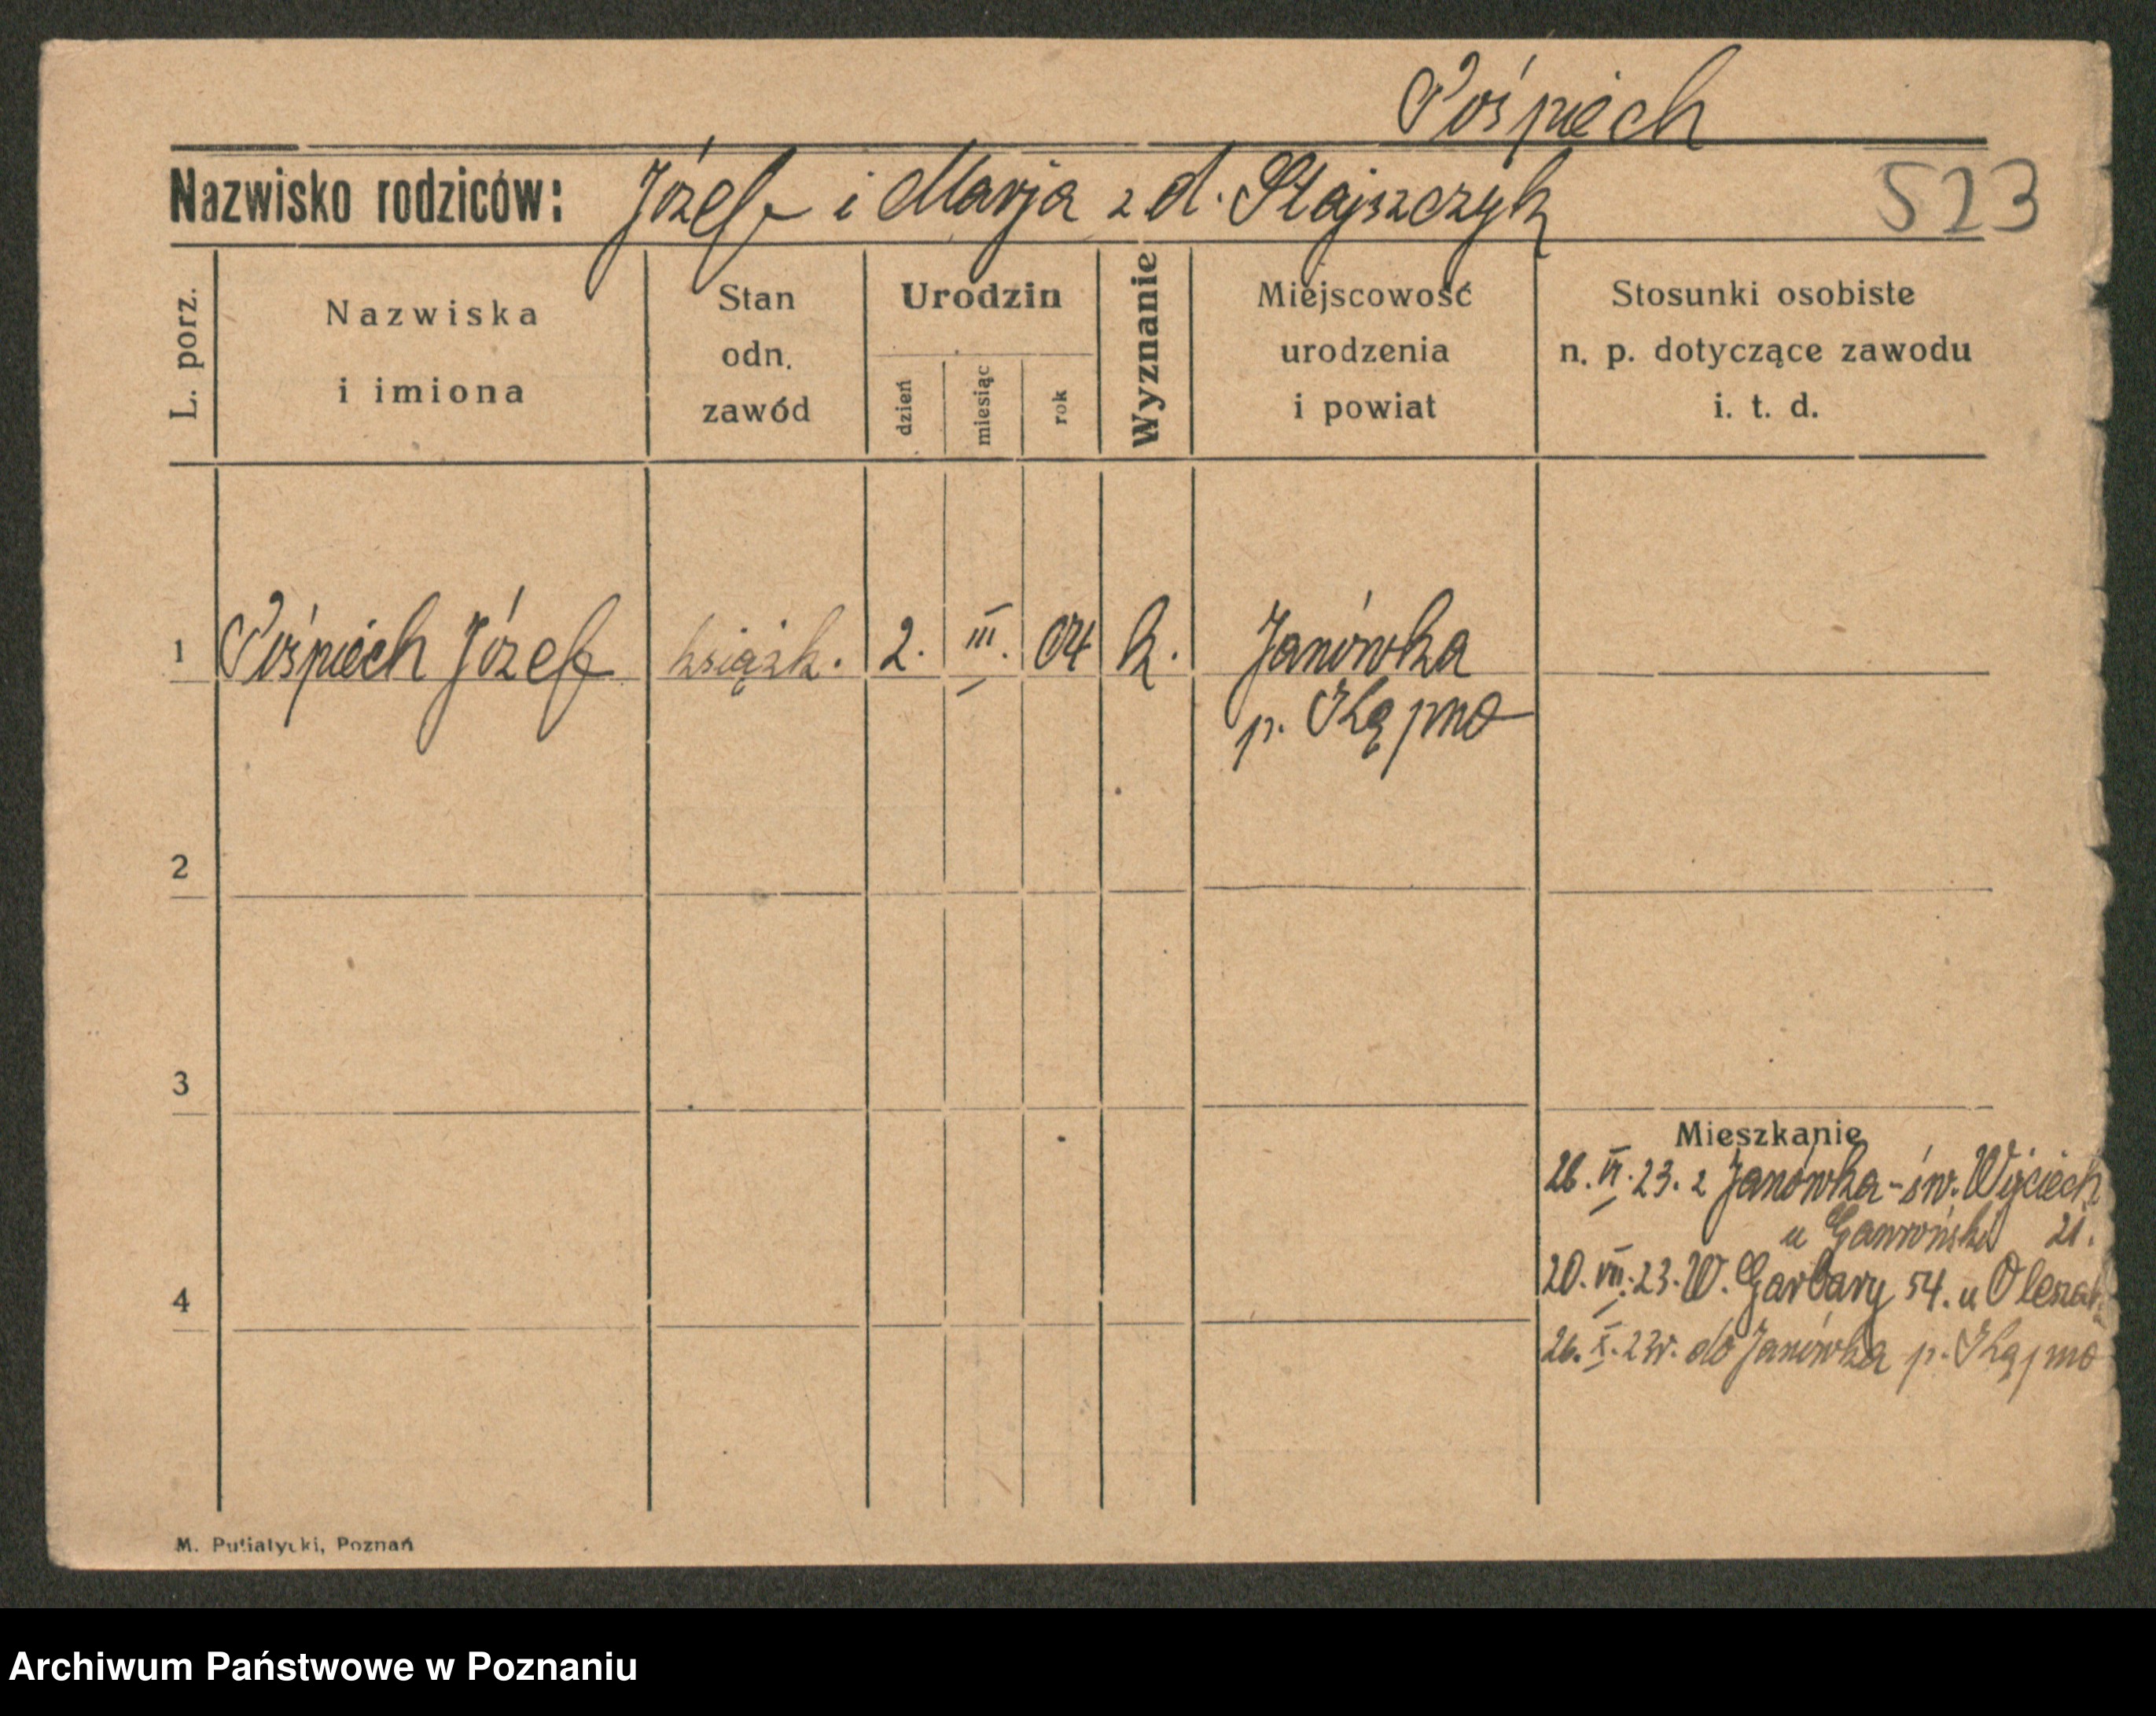 Pośpiech
Nazwisko rodziców: Józef i Marja z d. Stajszczyk 523
L. porz. Nazwiska i imiona Stan odn. zawód Urodzin dzień miesiąc rok Wyznanie Miejscowość urodzenia i powiat Stosunki osobiste n. p. dotyczące zawodu i. t. d.
1 Pośpiech Józef książk. 2. III. 04 k. Janówka
p. Kępno
2
3
Mieszkanie
26. VI. 23. z Janówka - św. Wojciech
u 21.
20. VII. 23. W. Garbary 54. u
4
26. X. 23r. do Janówka p. Kępno
M. Putiatycki, Poznań
Archiwum Państwowe w Poznaniu